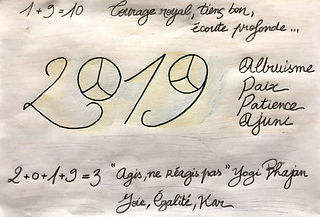 1+9=10 Courage royal, tiens bon,
écoute profonde...
2019
Altruisme
Paix
Patience
2+0+1+9=3 "Agis, ne réagis pas" Yogi Bhajan
Joie, Égalité,